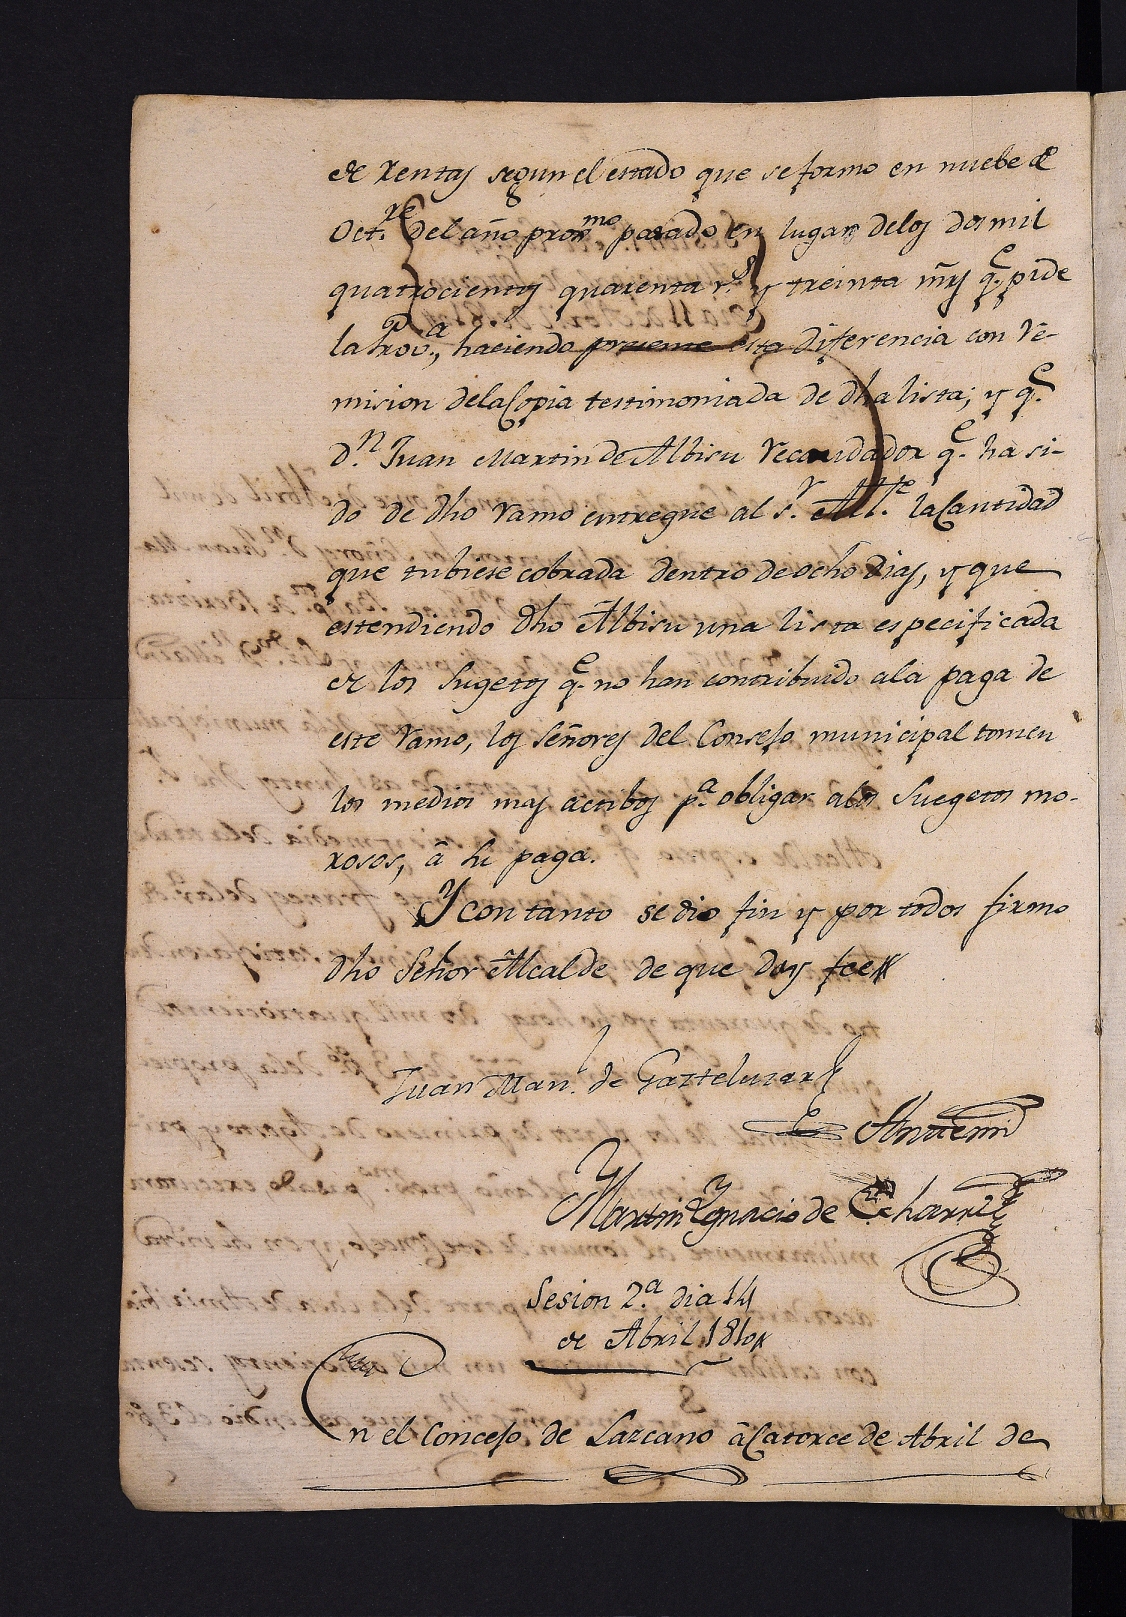 de rentas segun el estado que se formo en nuebe de
Oct.re del año proxmo pasado en lugar de los dos mil
quatrocientos quarenta r.s y treinta mrs q.e pide
la Prov.a, haciendo presente esta diferencia con re-
mision dela Copia testimoniada de dha lista; y q.e
d.n Juan Martin de Albisu recaudador q.e ha si-
do de dho ramo entregue al s.r Alc.e la Cantidad
que tubiese cobrada dentro de ocho dias, y que
estendiendo dho Albisu una lista especificada
de los sugetos q.e no han contribuido ala paga de
este ramo, los señores del Consejo municipal tomen
los medios mas actibos p.a obligar alos suegetos mo-
rosos, â su paga.
Y con tanto se dio fin y por todos firmo
dho Señor Alcalde de que doy fee
Juan Man.l de Gaztelu
Ante mi
Martin Ygnacio de Echarri
Sesion 2.a dia 14
de Abril 1810
En el Concejo de Lazcano â Catorce de Abril de